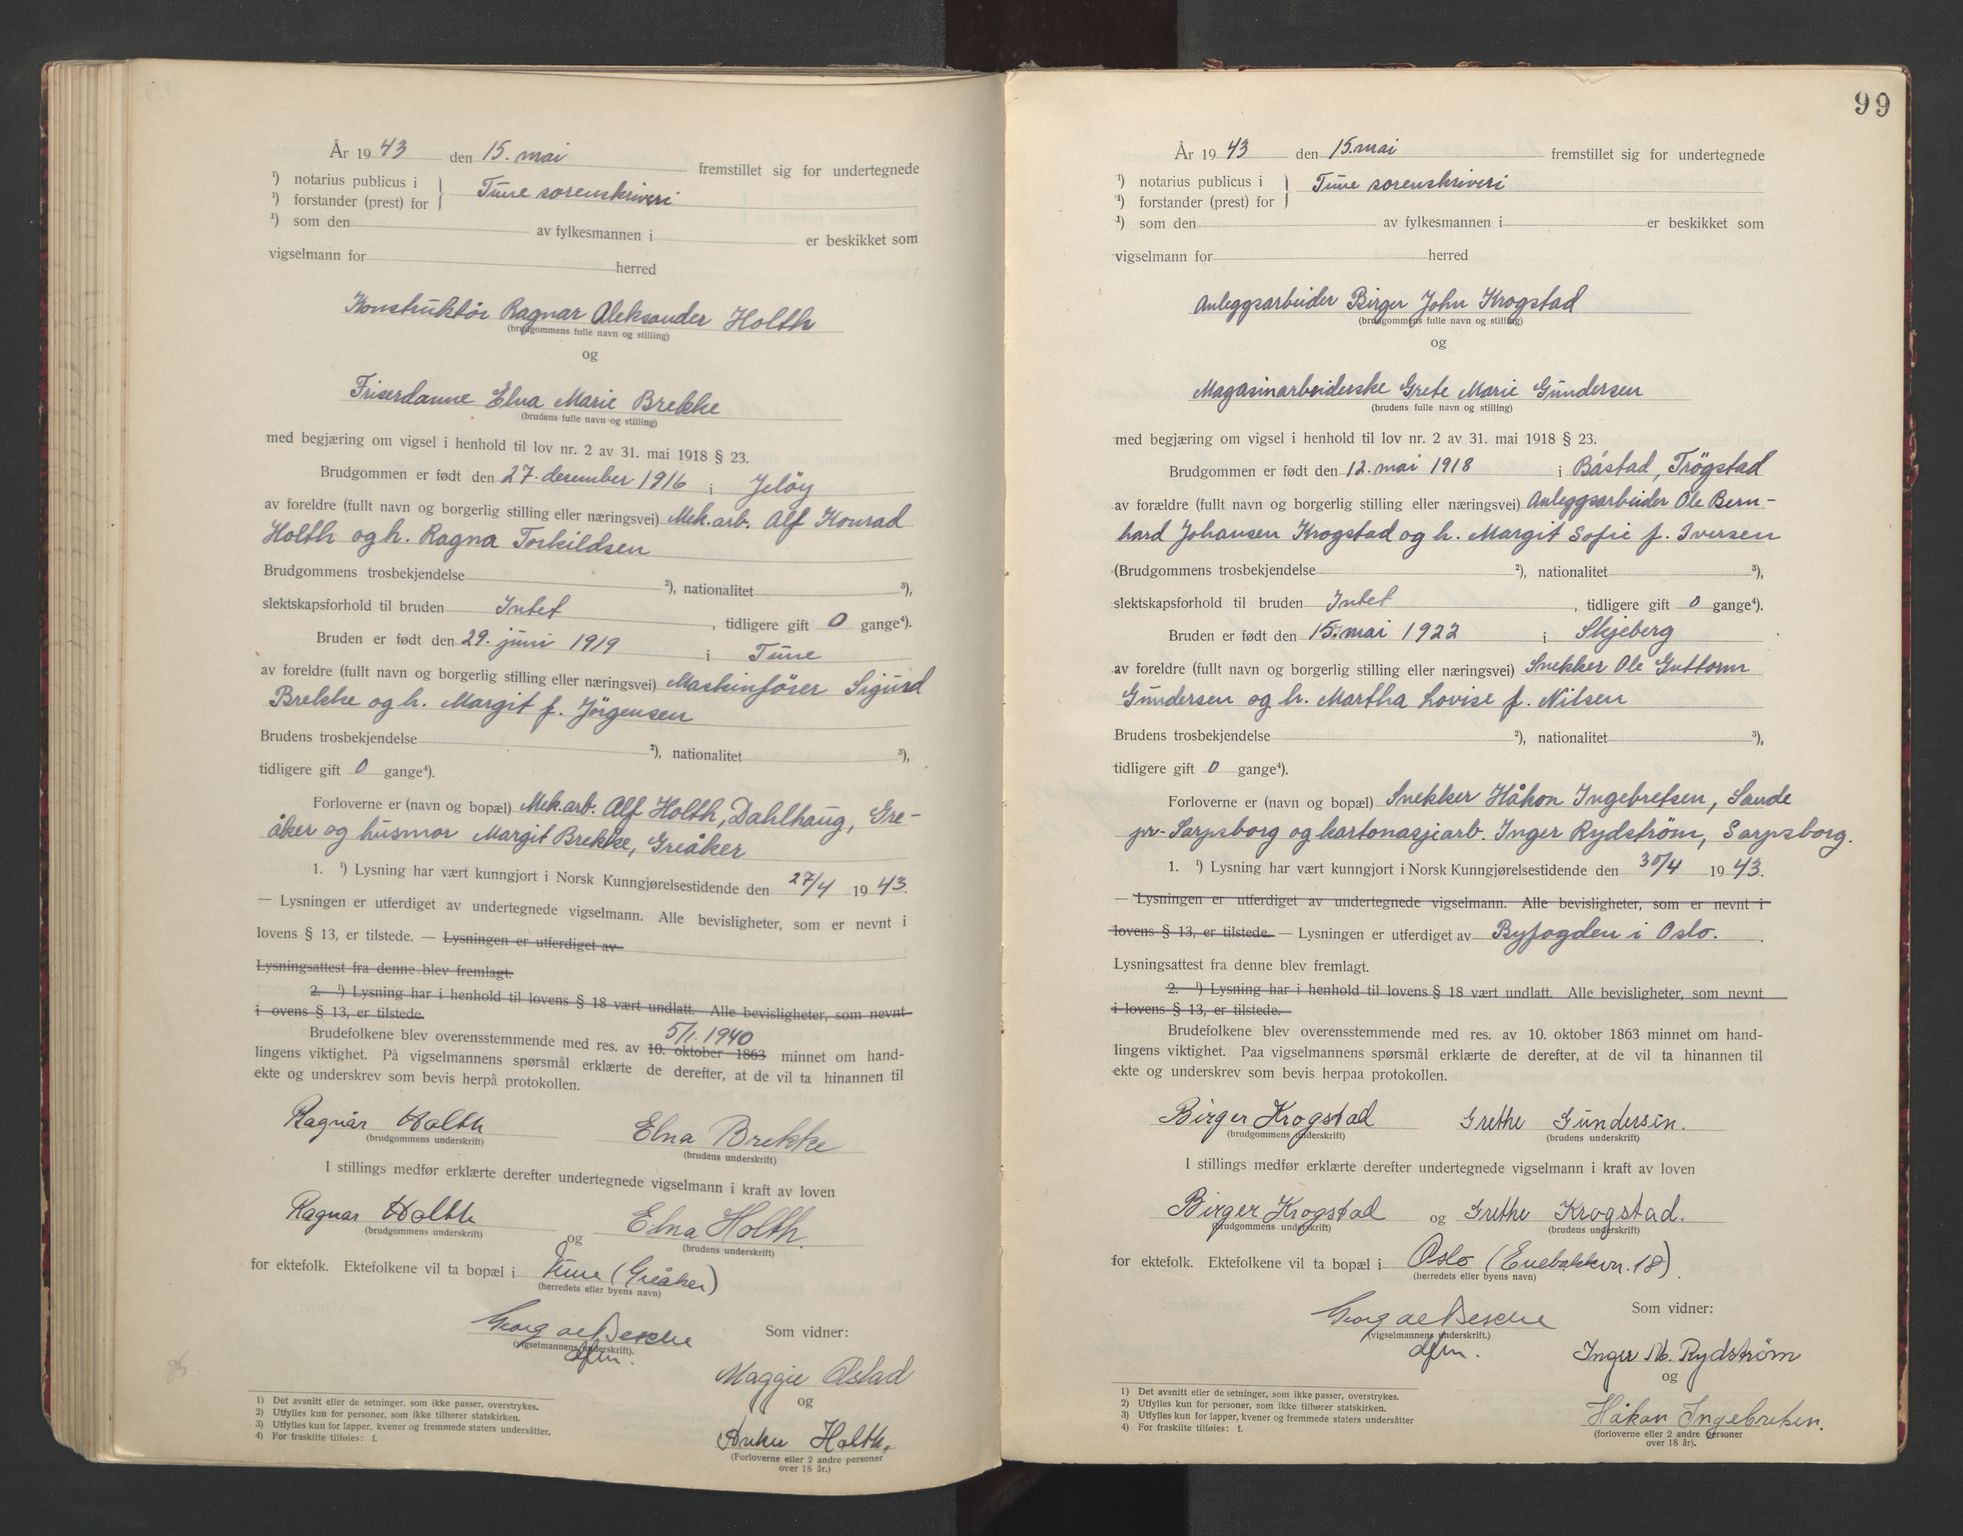 År 1943 den 15. mai fremstillet sig for undertegnede
¹) notarius publicus i } Tune sorenskriveri
¹) forstander (prest) for
¹) som den av fylkesmannen i er beskikket som
vigselmann for herred
Konstruktør Ragnar Aleksander Holth
(brudgommens fulle navn og stilling)
og
Friserdamme Elna Marie Brekke
(brudens fulle navn og stilling)
med begjæring om vigsel i henhold til lov nr. 2 av 31. mai 1918 § 23.
Brudgommen er født den 27. desember 1916 i Jeløy
av foreldre (fullt navn og borgerlig stilling eller næringsvei) Mek.arb. Alf Konrad
Holth og h. Ragna Torkildsen
Brudgommens trosbekjendelse ²), nationalitet ³),
slektskapsforhold til bruden Intet, tidligere gift 0 gange⁴).
Bruden er født den 29. juni 1919 i Tune
av foreldre (fullt navn og borgerlig stilling eller næringsvei) Maskinfører Sigurd
Brekke og h. Margit f. Jörgensen
Brudens trosbekjendelse ²), nationalitet ³),
tidligere gift 0 gange⁴).
Forloverne er (navn og bopæl) Mek.arb. Alf Holth, Dahlhaug, Gre-
åker og husmor Margit Brekke, Greåker
1. ¹) Lysning har vært kunngjort i Norsk Kunngjørelsestidende den 27/4 1943.
— Lysningen er utferdiget av undertegnede vigselmann. Alle bevisligheter, som er nevnt i
lovens § 13, er tilstede. — Lysningen er utferdiget av
Lysningsattest fra denne blev fremlagt.
2. ¹) Lysning har i henhold til lovens § 18 vært undlatt. Alle bevisligheter, som nevnt
i ovens § 13, er tilstede.
5/1. 1940
Brudefolkene blev overensstemmende med res. av 10. oktober 1863 minnet om hand-
lingens viktighet. På vigselmannens spørsmål erklærte de derefter, at de vil ta hinannen til
ekte og underskrev som bevis herpå protokollen.
Ragnar Holth Elna Brekke
(brudgommens underskrift) (brudens underskrift)
I stillings medfør erklærte derefter undertegnede vigselmann i kraft av loven
Ragnar Holth og Elna Holth.
(brudgommens underskrift) (brudens underskrift)
for ektefolk. Ektefolkene vil ta bopæl i Tune (Greåker)
(herredets eller byens navn)
Georg
(vigselmannens underskrift).
Som vidner:
Maggie Ølstad
og
Holth.
(Forloverne eller 2 andre personer
over 18 år.)
1) Det avsnitt eller de setninger, som ikke passer, overstrykes.
2) Utfylles kun for personer, som ikke tilhører statskirken.
3) Utfylles kun for lapper, kvener og fremmede staters undersåtter.
4) For fraskilte tilføies: f.
99
År 1943 den 15. mai fremstillet sig for undertegnede
¹) notarius publicus i } Tune sorenskriveri
¹) forstander (prest) for
¹) som den av fylkesmannen i er beskikket som
vigselmann for herred
Anleggsarbeider Birger John Krogstad
(brudgommens fulle navn og stilling)
og
Magasinarbeiderske Grete Marie Gundersen
(brudens fulle navn og stilling)
med begjæring om vigsel i henhold til lov nr. 2 av 31. mai 1918 § 23.
Brudgommen er født den 12. mai 1918 i Båstad, Trögstad
av forældre (fullt navn og borgerlig stilling eller næringsvei) Anleggsarbeider Ole Bern-
hard Johansen Krogstad og h. Margit Sofie f. Iversen
(Brudgommens trosbekjendelse ²), nationalitet ³),
slektskapsforhold til bruden Intet, tidligere gift 0 gange⁴).
Bruden er født den 15. mai 1922 i Skjeberg
av foreldre (fullt navn og borgerlig stilling eller næringsvei) Snekker Ole Guttorm
Gundersen og h. Martha Lovise f. Nilsen
Brudens trosbekjendelse ²), nationalitet ³),
tidligere gift 0 gange⁴).
Forloverne er (navn og bopæl) Snekker Håkon Ingebretsen, Sande
pr. Sarpsborg og kartonasjearb. Inger Rydstrøm, Sarpsborg.
1. ¹) Lysning har vært kunngjort i Norsk Kunngjørelsestidende den 30/4 1943.
— Lysningen er utferdiget av undertegnede vigselmann. Alle bevisligheter, som er nevnt i
lovens § 13, er tilstede. — Lysningen er utferdiget av Byfogden i Oslo.
Lysningsattest fra denne blev fremlagt.
2. ¹) Lysning har i henhold til lovens § 18 vært undlatt. Alle bevisligheter, som nevnt
i lovens § 13, er tilstede.
Brudefolkene blev overensstemmende med res. av 10. oktober 1863 minnet om hand-
lingens viktighet. Paa vigselmannens spørsmål erklærte de derefter, at de vil ta hinannen til
ekte og underskrev som bevis herpaa protokollen.
Birger Krogstad Grethe Gundersen.
(brudgommens underskrift) (brudens underskrift)
I stillings medfør erklærte derefter undertegnede vigselmann i kraft av loven
Birger Krogstad og Grethe Krogstad.
(brudgommens underskrift) (brudens underskrift)
for ektefolk. Ektefolkene vil ta bopæl i Oslo (Enebakkvn. 18).
(herredets eller byens navn)
Georg
(vigselmannens underskrift.)
Som vidner:
Inger M. Rydstrøm
og
Håkon Ingebretsen.
(forloverne eller 2 andre personer
over 18 år).
1) Det avsnitt eller de setninger, som ikke passer, overstrykes.
2) Utfylles kun for personer, som ikke tilhører statskirken.
3) Utfylles kun for lapper, kvener og fremmede staters undersåtter
4) For fraskilte tilføies: f.